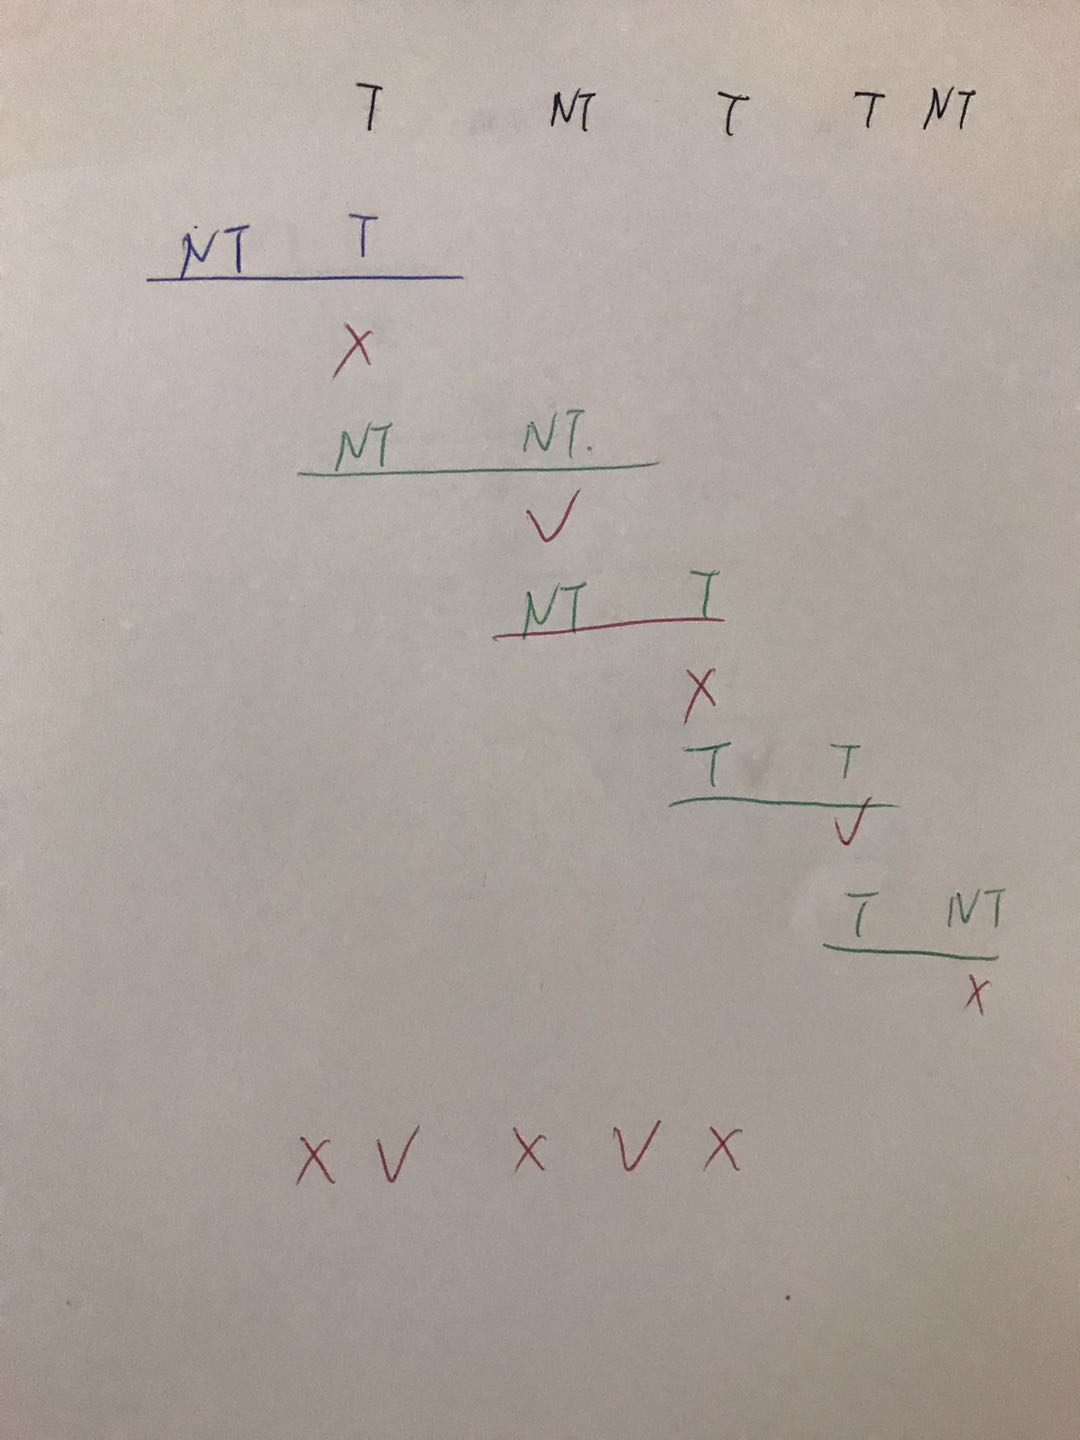 T NT T T NT
NT T
X
NT NT.
✓
NT T
X
T T
✓
T NT
X
X ✓ X ✓ X